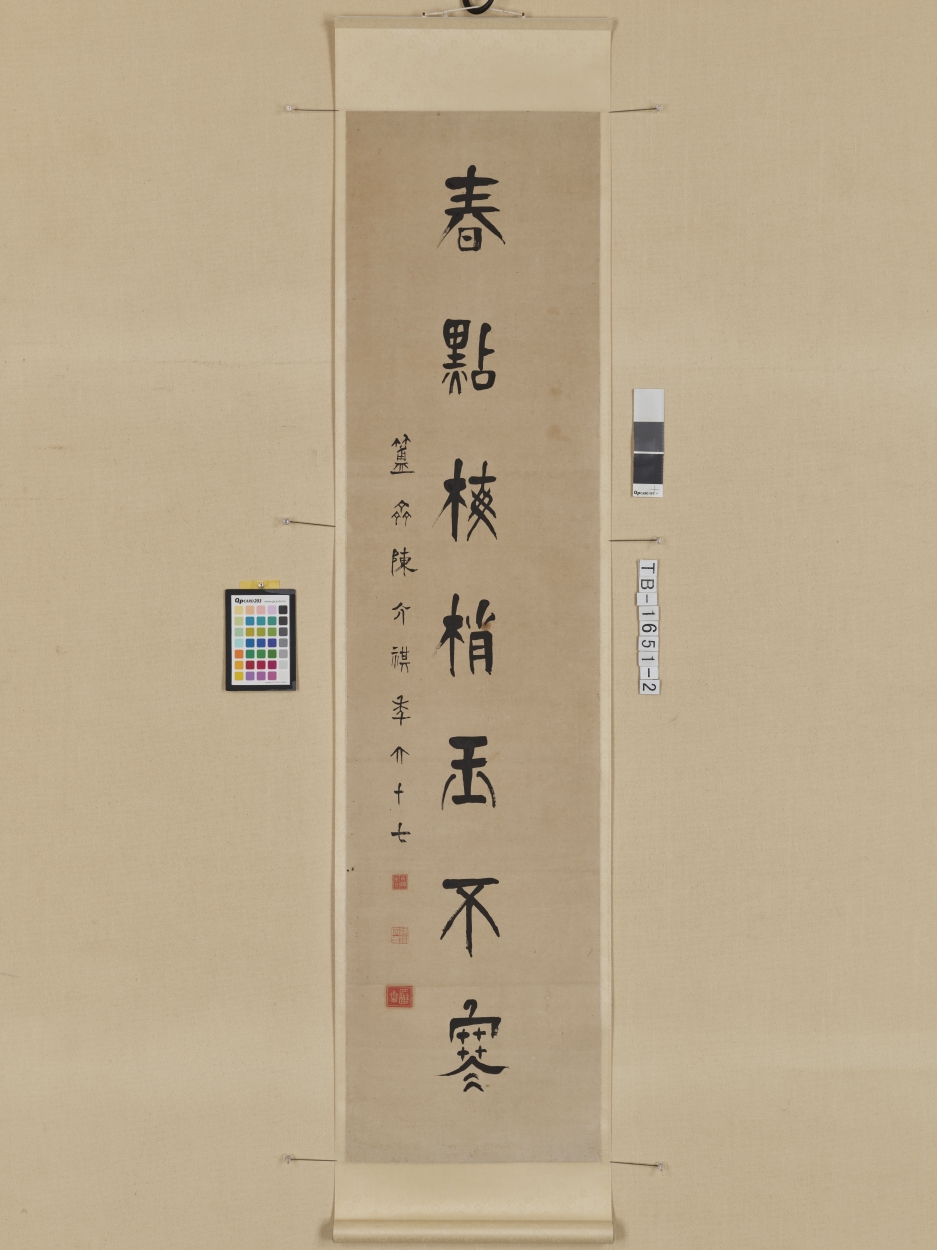 春點梅梢玉不寒
簠齋陳介祺季六十七
TB-1651-2
QpCARD 203